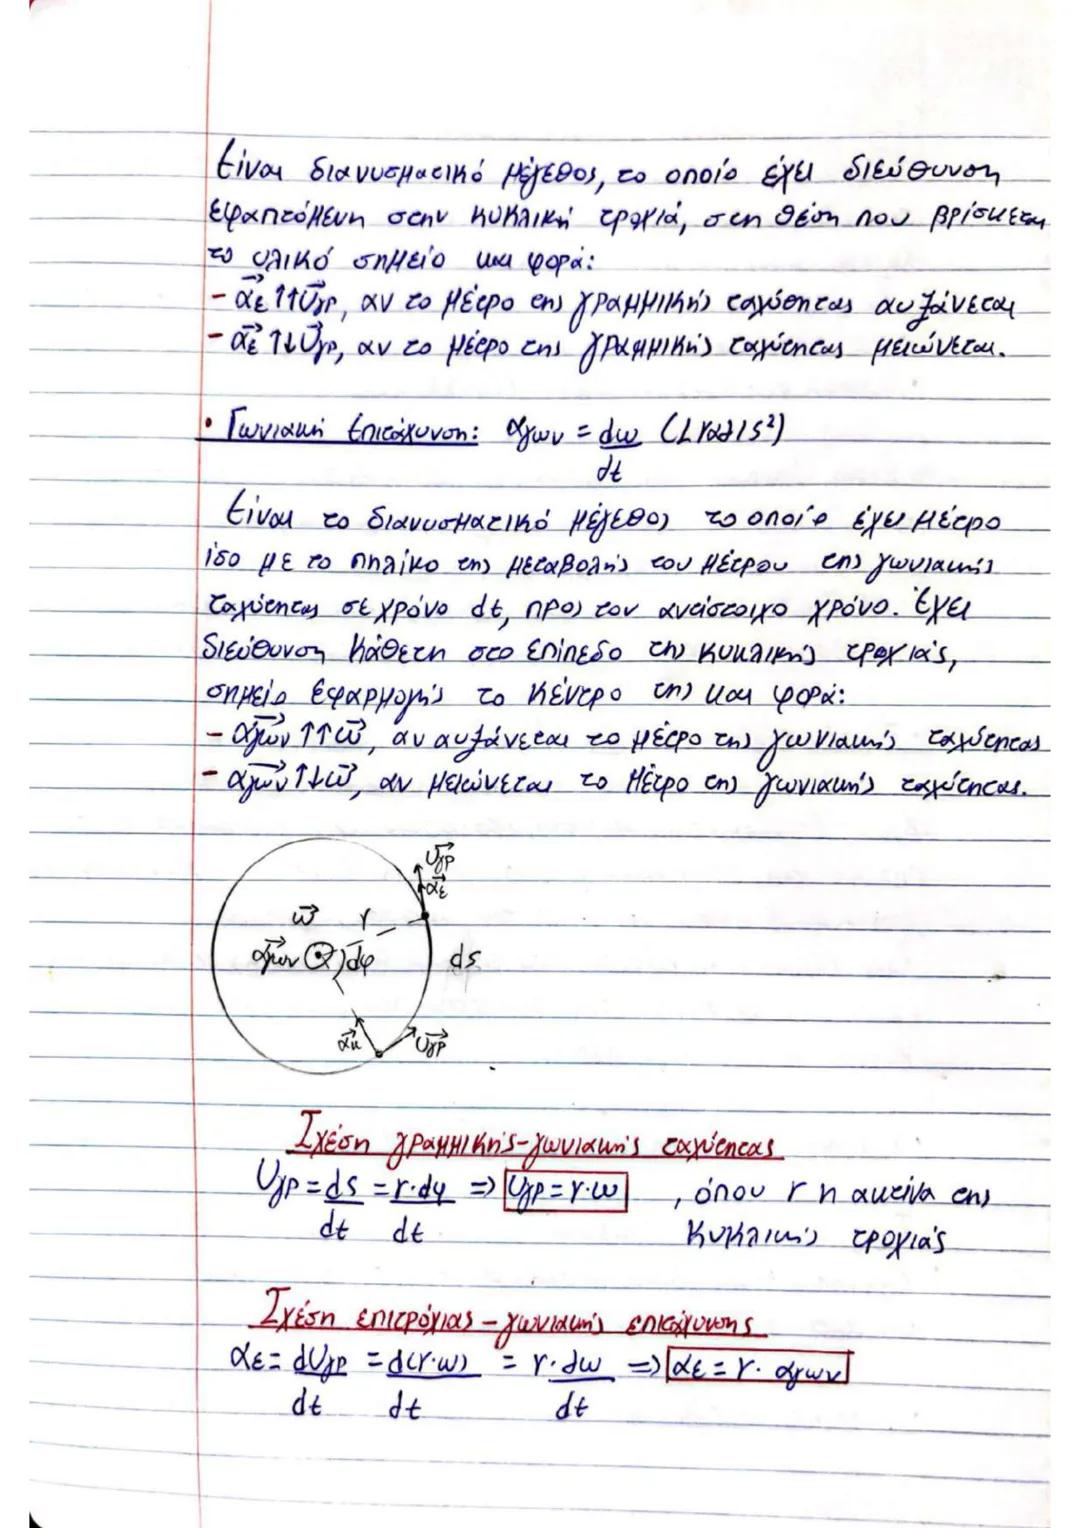 Είναι διανυσματικό μέγεθος, το οποίο έχει διεύθυνση
εφαπτόμενη στην κυκλική τροχιά, στη θέση που βρίσκεται
το υλικό σημείο και φορά:
- α⃗ε ↑↑ υ⃗γρ, αν το μέτρο της γραμμικής ταχύτητας αυξάνεται
- α⃗ε ↑↓ υ⃗γρ, αν το μέτρο της γραμμικής ταχύτητας μειώνεται.
• Γωνιακή επιτάχυνση: αγων = dω/dt (1 rad/s²)
Είναι το διανυσματικό μέγεθος το οποίο έχει μέτρο
ίσο με το πηλίκο της μεταβολής του μέτρου της γωνιακής
ταχύτητας σε χρόνο dt, προς τον αντίστοιχο χρόνο. Έχει
διεύθυνση κάθετη στο επίπεδο της κυκλικής τροχιάς,
σημείο εφαρμογής το κέντρο της και φορά:
- α⃗γων ↑↑ ω⃗, αν αυξάνεται το μέτρο της γωνιακής ταχύτητας
- α⃗γων ↑↓ ω⃗, αν μειώνεται το μέτρο της γωνιακής ταχύτητας.
υ⃗γρ
α⃗ε
ω⃗ r
α⃗γων dφ ds
α⃗κ υ⃗γρ
Σχέση γραμμικής-γωνιακής ταχύτητας
υγρ = ds/dt = r·dφ/dt => υγρ = r·ω , όπου r η ακτίνα της
κυκλικής τροχιάς
Σχέση επιτρόχιας - γωνιακής επιτάχυνσης
αε = dυγρ/dt = d(r·ω)/dt = r·dω/dt => αε = r·αγων